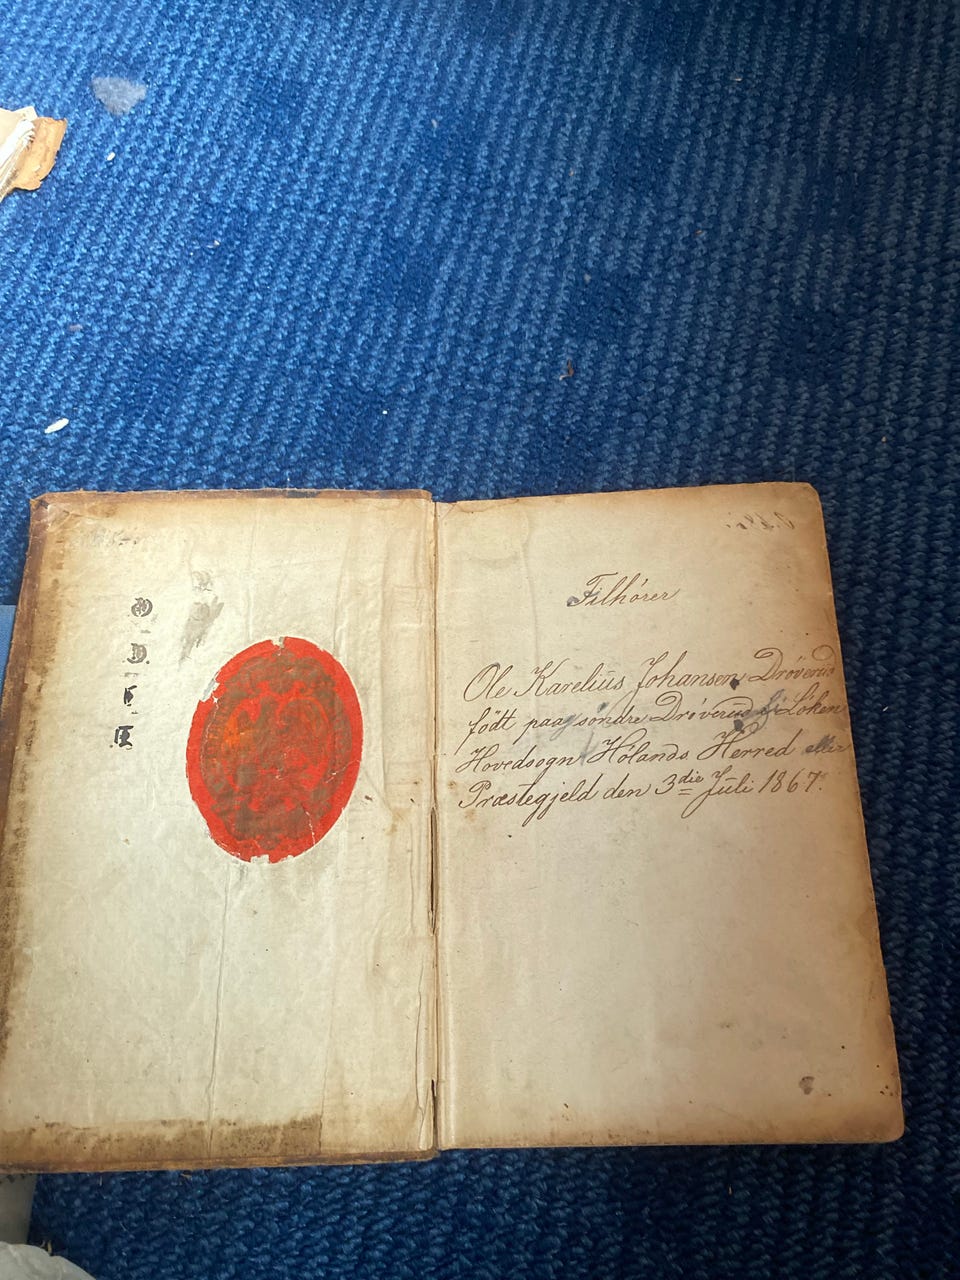 Tilhörer
Ole Karelius Johansen Dröverud
födt paa söndre Dröverud i Löken
Hovedsogn Hölands Herred eller
Præstegjeld den 3die Juli 1867.